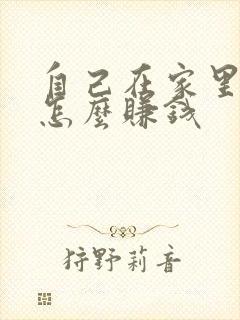 自己在家里
怎麼賺錢
狩野莉音